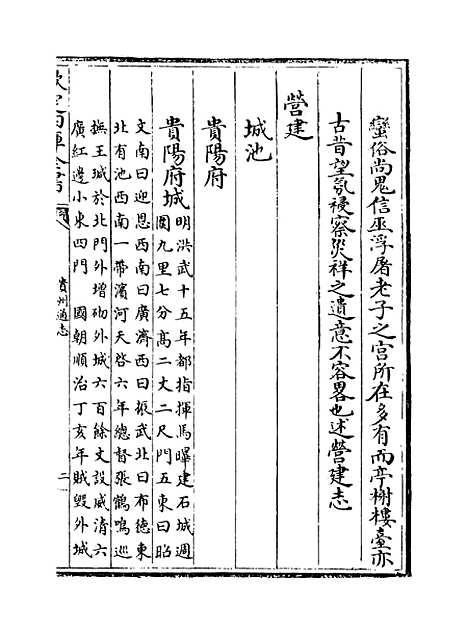 蠻俗尚鬼信巫浮屠老子之宫所在多有而亭榭樓臺亦
古昔望氛祲察災祥之遺意不容畧也述營建志
營建
城池
貴陽府
貴陽府城
明洪武十五年都指揮馬曄建石城週
圍九里七分髙二丈二尺門五東曰昭
文南曰迎恩西南曰廣濟西曰振武北曰布德東
北有池西南一帶濱河天啓六年總督張鶴鳴巡
撫王瑊於北門外增砌外城六百餘丈設威清六
廣紅邊小東四門　國朝順治丁亥年賊毁外城
貴州通志
二